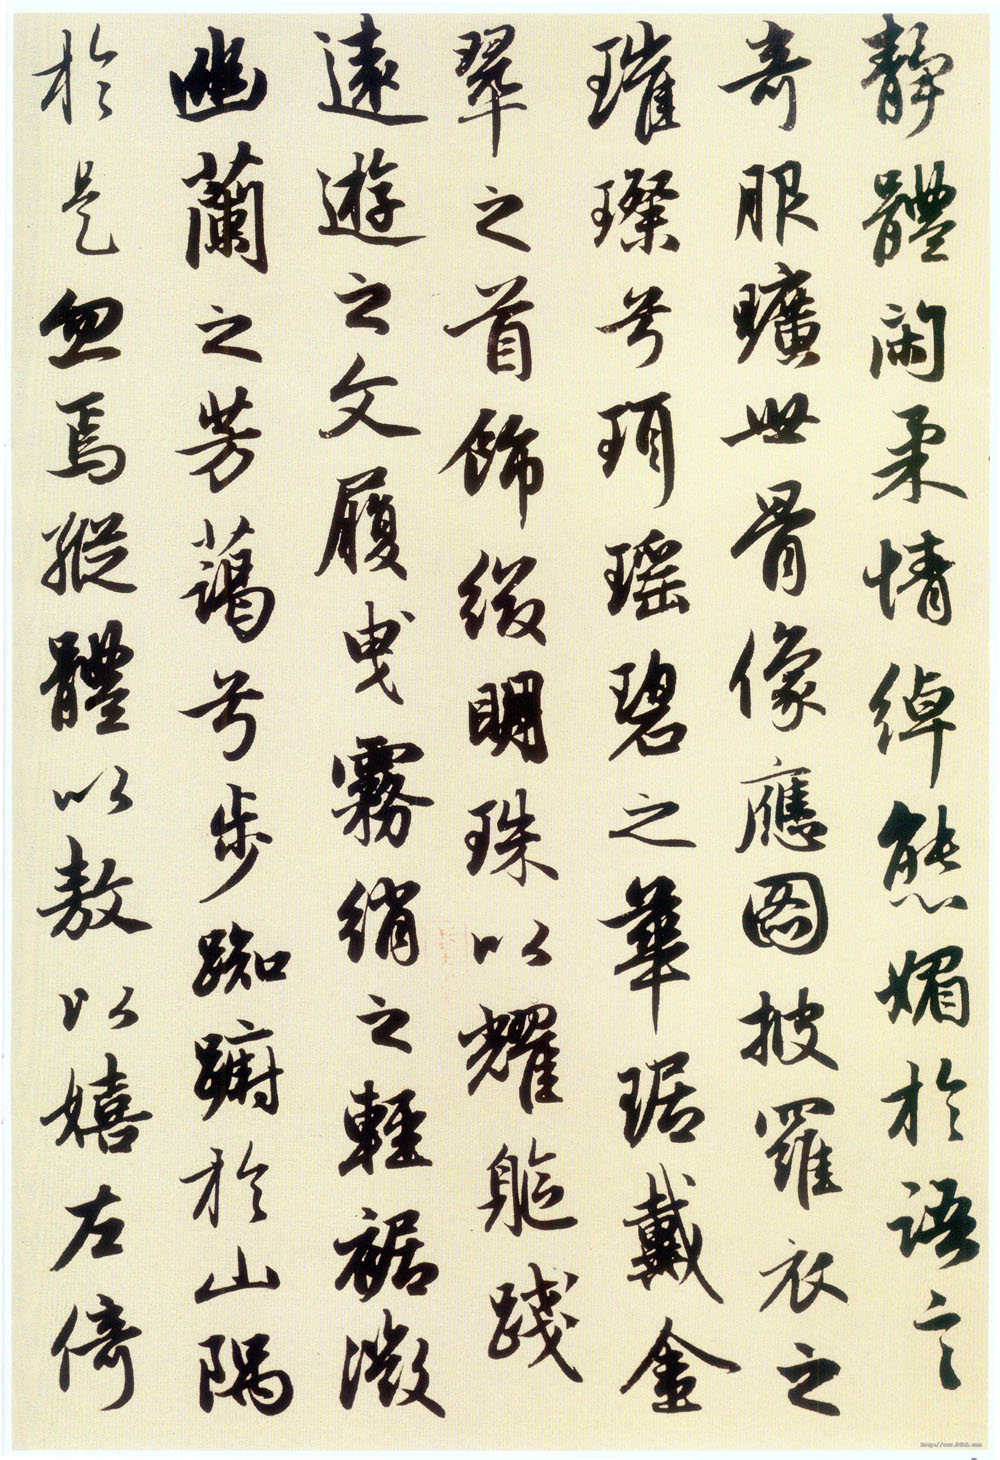 靜體閑柔情綽態媚於語言
奇服曠世骨像應圖披羅衣之
璀璨兮珥瑤碧之華琚戴金
翠之首飾綴明珠以耀軀踐
遠遊之文履曳霧綃之輕裾微
幽蘭之芳藹兮步踟躕於山隅
於是忽焉縱體以敖以嬉左倚